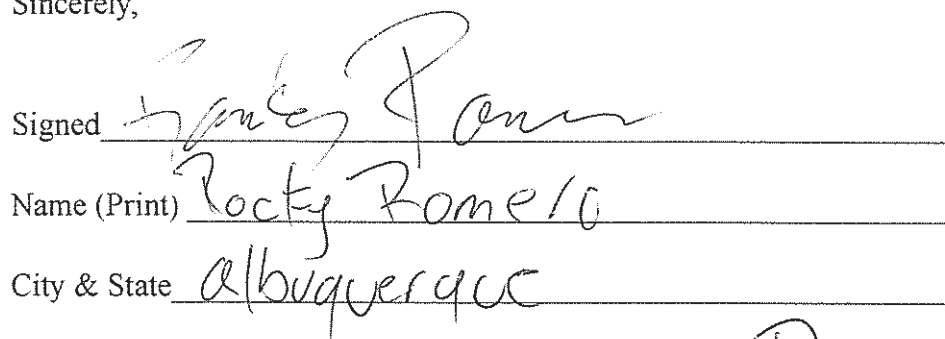 Sincerely,
Signed
Name (Print) Rocky Romero
City & State Albuquerque